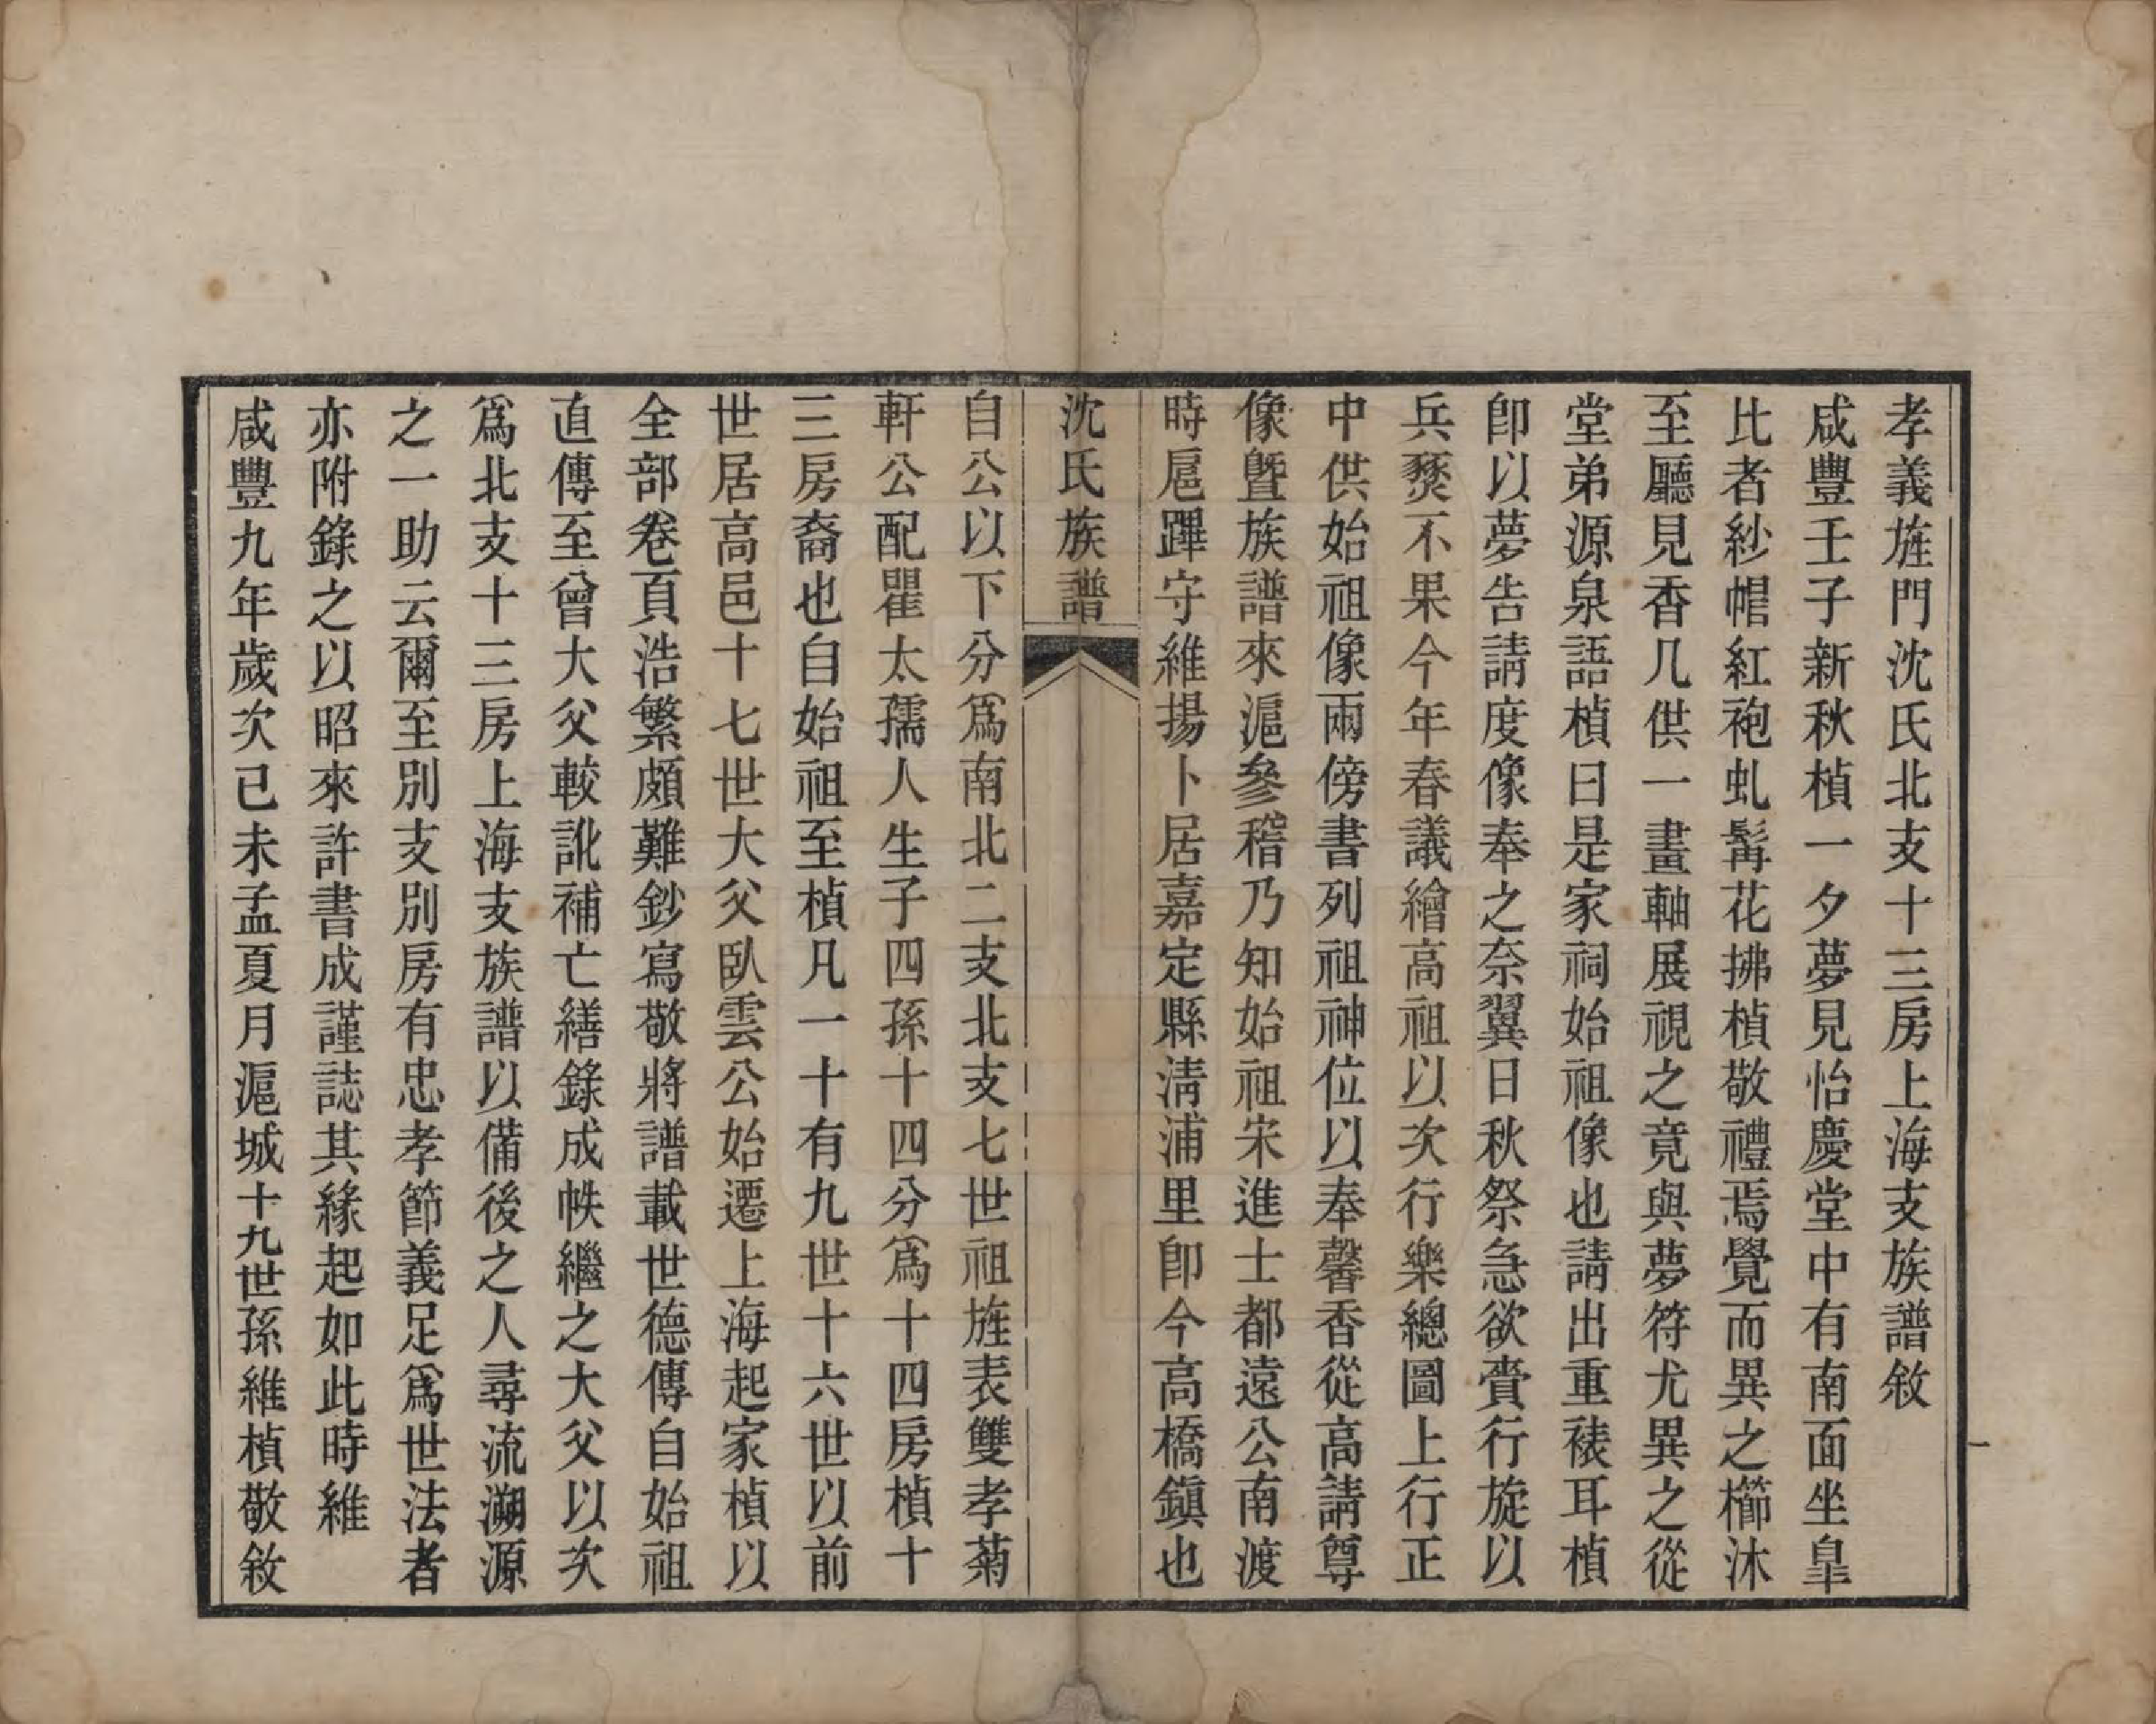 孝義旌門沈氏北支十三房上海支族譜敘
咸豐壬子新秋楨一夕夢見怡慶堂中有南面坐皐
比者紗帽紅袍虬髯花拂楨敬禮焉覺而異之櫛沐
至廳見香几供一畫軸展視之竟與夢符尤異之從
堂弟源泉語楨曰是家祠始祖像也請出重裱耳楨
卽以夢告請度像奉之奈翼日秋祭急欲賫行旋以
兵燹不果今年春議繪高祖以次行樂總圖上行正
中供始祖像兩傍書列祖神位以奉馨香從高請尊
像曁族譜來滬參稽乃知始祖宋進士都遠公南渡
時扈蹕守維揚卜居嘉定縣淸浦里卽今高橋鎭也
沈氏族譜
自公以下分爲南北二支北支七世祖旌表雙孝菊
軒公配瞿太孺人生子四孫十四分爲十四房楨十
三房裔也自始祖至楨凡一十有九世十六世以前
世居高邑十七世大父臥雲公始遷上海起家楨以
全部卷頁浩繁頗難鈔寫敬將譜載世德傳自始祖
直傳至曾大父較訛補亡繕錄成帙繼之大父以次
爲北支十三房上海支族譜以備後之人尋流溯源
之一助云爾至別支別房有忠孝節義足爲世法者
亦附錄之以昭來許書成謹誌其緣起如此時維
咸豐九年歲次已未孟夏月滬城十九世孫維楨敬敘